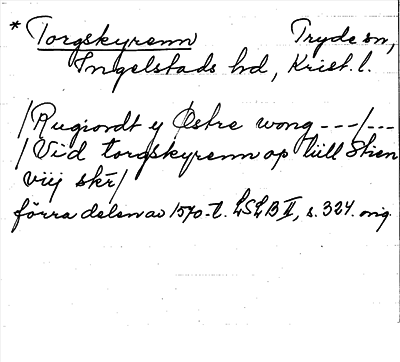 * Torgskyrenn Tryde sn,
Ingelstads hd, Krist. l.
/Rugiordt y Østre wong ---/---
/Vid torgskyrenn op till Stien
viij skr/
förra delen av 1570-t. LSLB II, s. 324. orig.